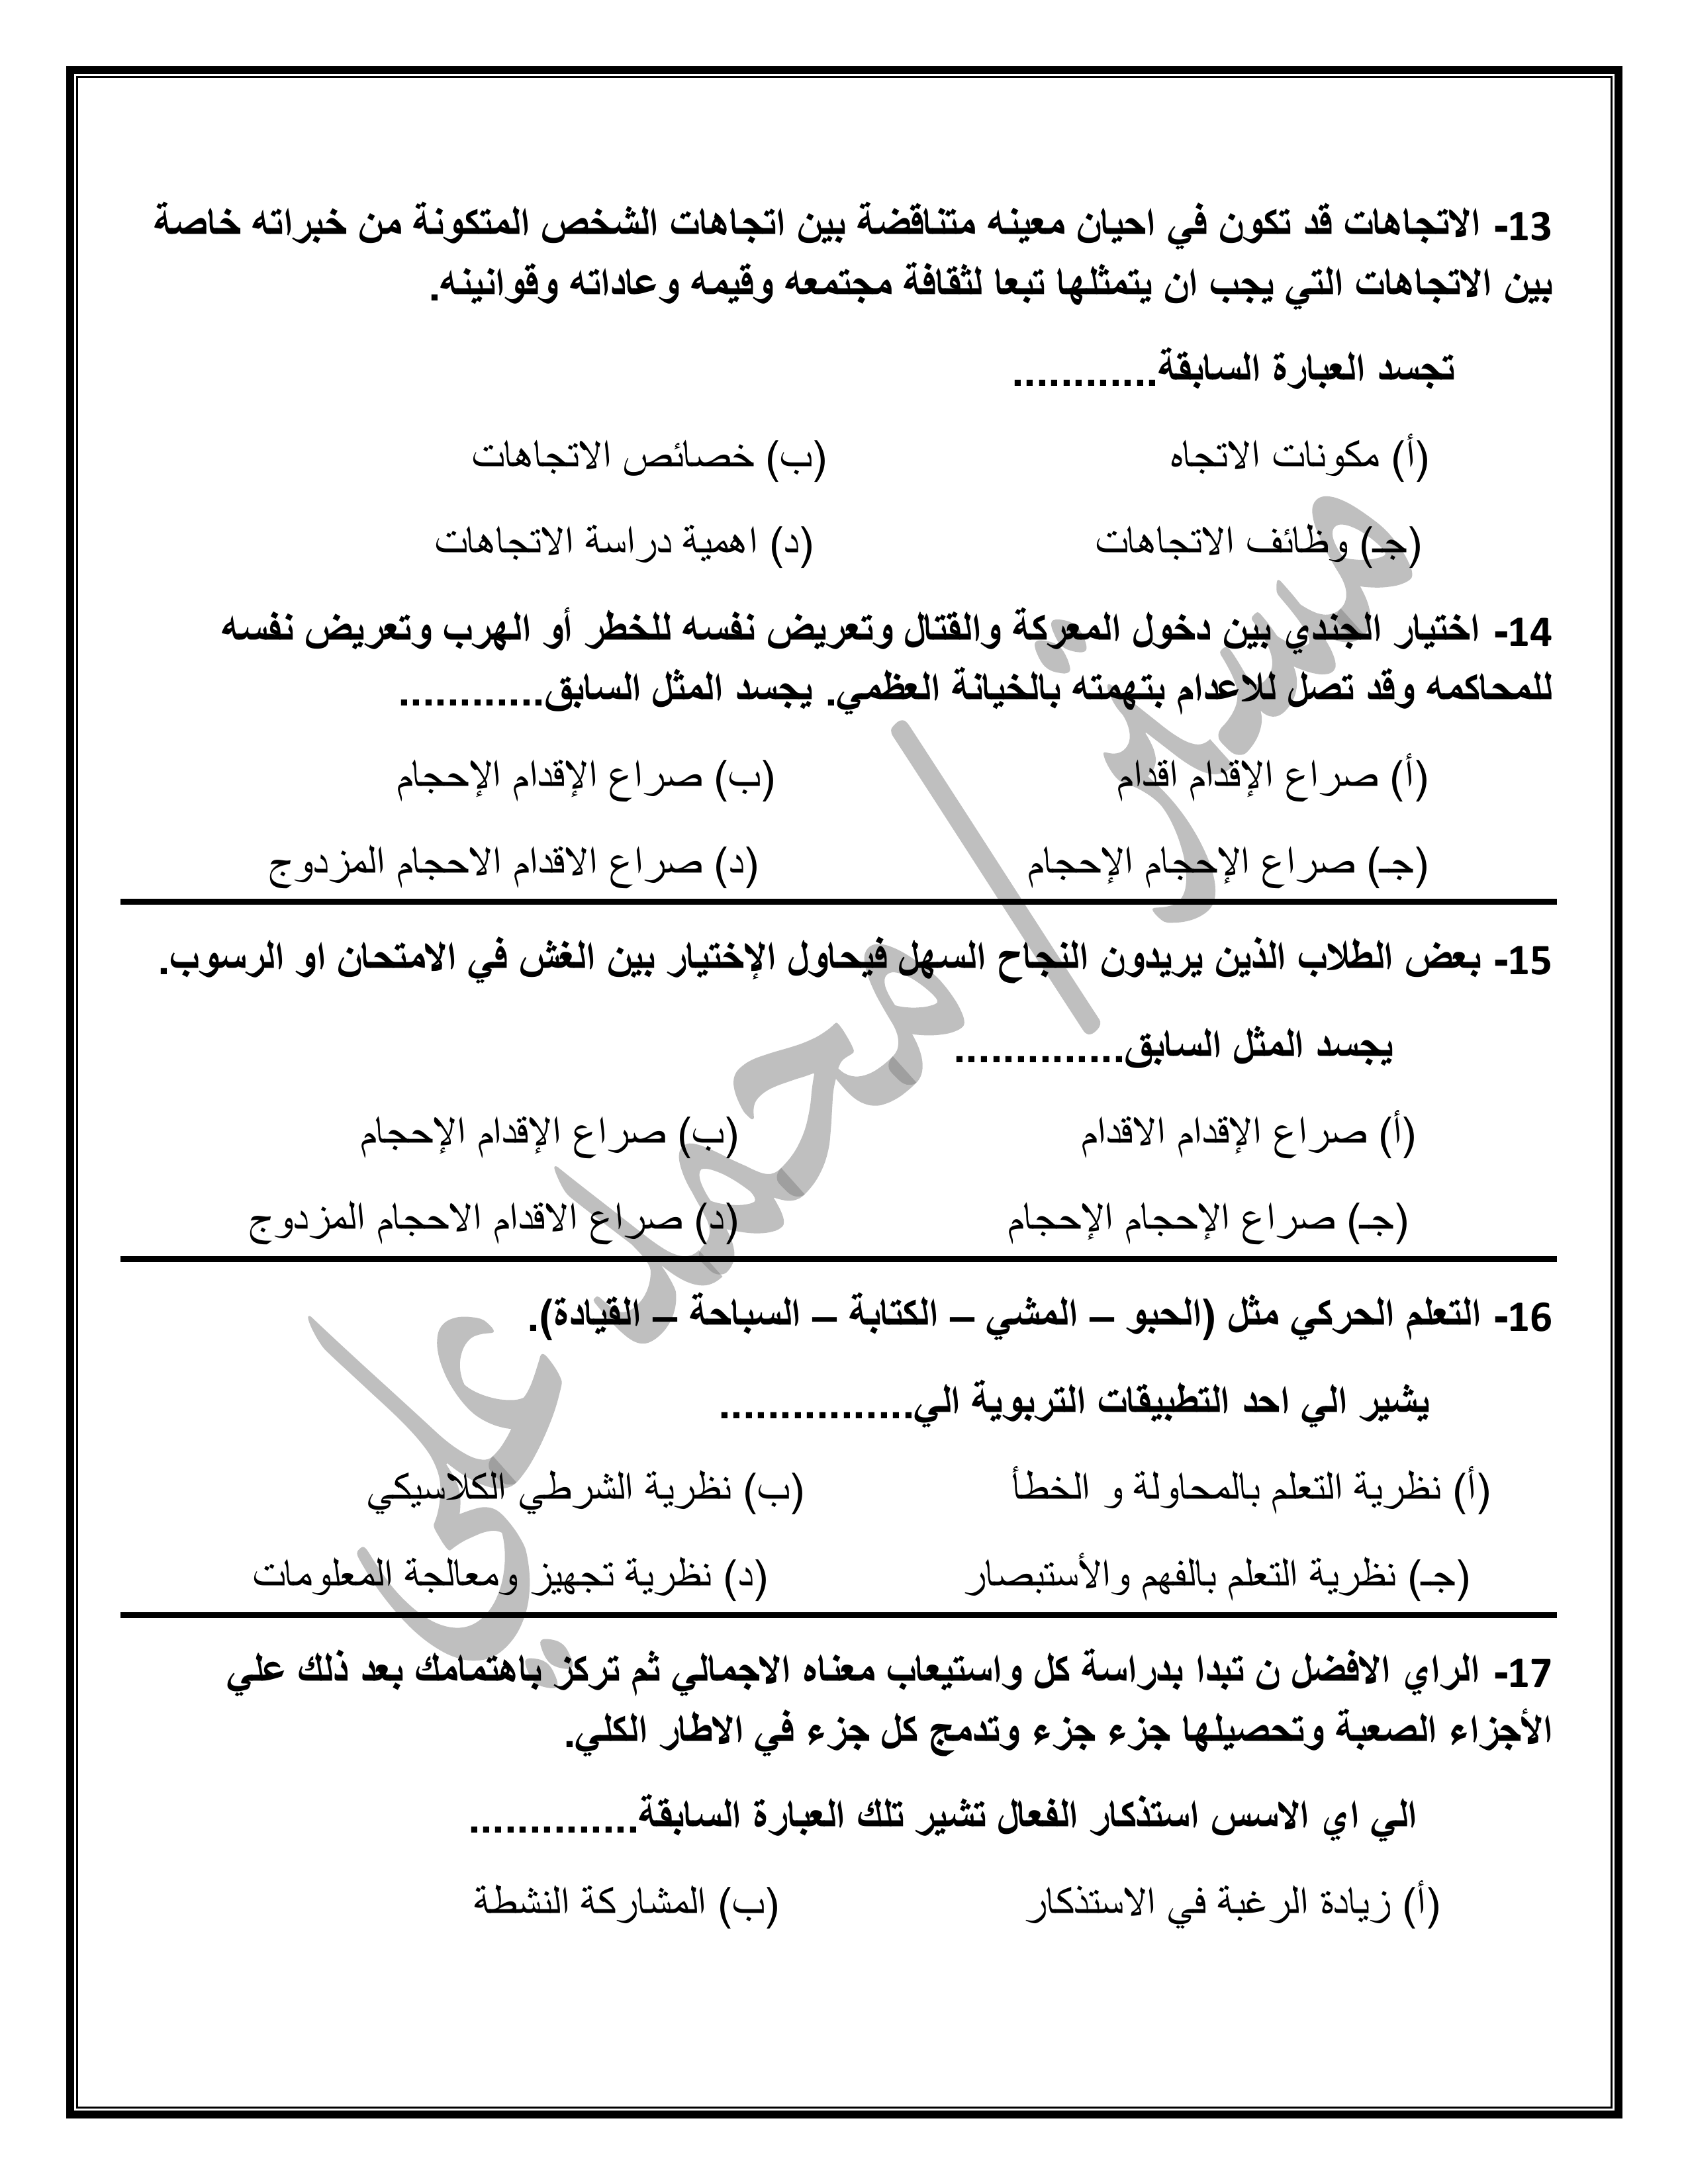 13- الاتجاهات قد تكون في احيان معينه متناقضة بين اتجاهات الشخص المتكونة من خبراته خاصة
بين الاتجاهات التي يجب ان يتمثلها تبعا لثقافة مجتمعه وقيمه وعاداته وقوانينه.
تجسد العبارة السابقة............
(أ) مكونات الاتجاه (ب) خصائص الاتجاهات
(جـ) وظائف الاتجاهات (د) اهمية دراسة الاتجاهات
14- اختيار الجندي بين دخول المعركة والقتال وتعريض نفسه للخطر أو الهرب وتعريض نفسه
للمحاكمه وقد تصل للاعدام بتهمته بالخيانة العظمي. يجسد المثل السابق............
(أ) صراع الإقدام اقدام (ب) صراع الإقدام الإحجام
(جـ) صراع الإحجام الإحجام (د) صراع الاقدام الاحجام المزدوج
15- بعض الطلاب الذين يريدون النجاح السهل فيحاول الإختيار بين الغش في الامتحان او الرسوب.
يجسد المثل السابق..............
(أ) صراع الإقدام الاقدام (ب) صراع الإقدام الإحجام
(جـ) صراع الإحجام الإحجام (د) صراع الاقدام الاحجام المزدوج
16- التعلم الحركي مثل (الحبو – المشي – الكتابة – السباحة – القيادة).
يشير الي احد التطبيقات التربوية الي................
(أ) نظرية التعلم بالمحاولة و الخطأ (ب) نظرية الشرطي الكلاسيكي
(جـ) نظرية التعلم بالفهم والأستبصار (د) نظرية تجهيز ومعالجة المعلومات
17- الراي الافضل ن تبدا بدراسة كل واستيعاب معناه الاجمالي ثم تركز باهتمامك بعد ذلك علي
الأجزاء الصعبة وتحصيلها جزء جزء وتدمج كل جزء في الاطار الكلي.
الي اي الاسس استذكار الفعال تشير تلك العبارة السابقة..............
(أ) زيادة الرغبة في الاستذكار (ب) المشاركة النشطة
مستر / محمد علي